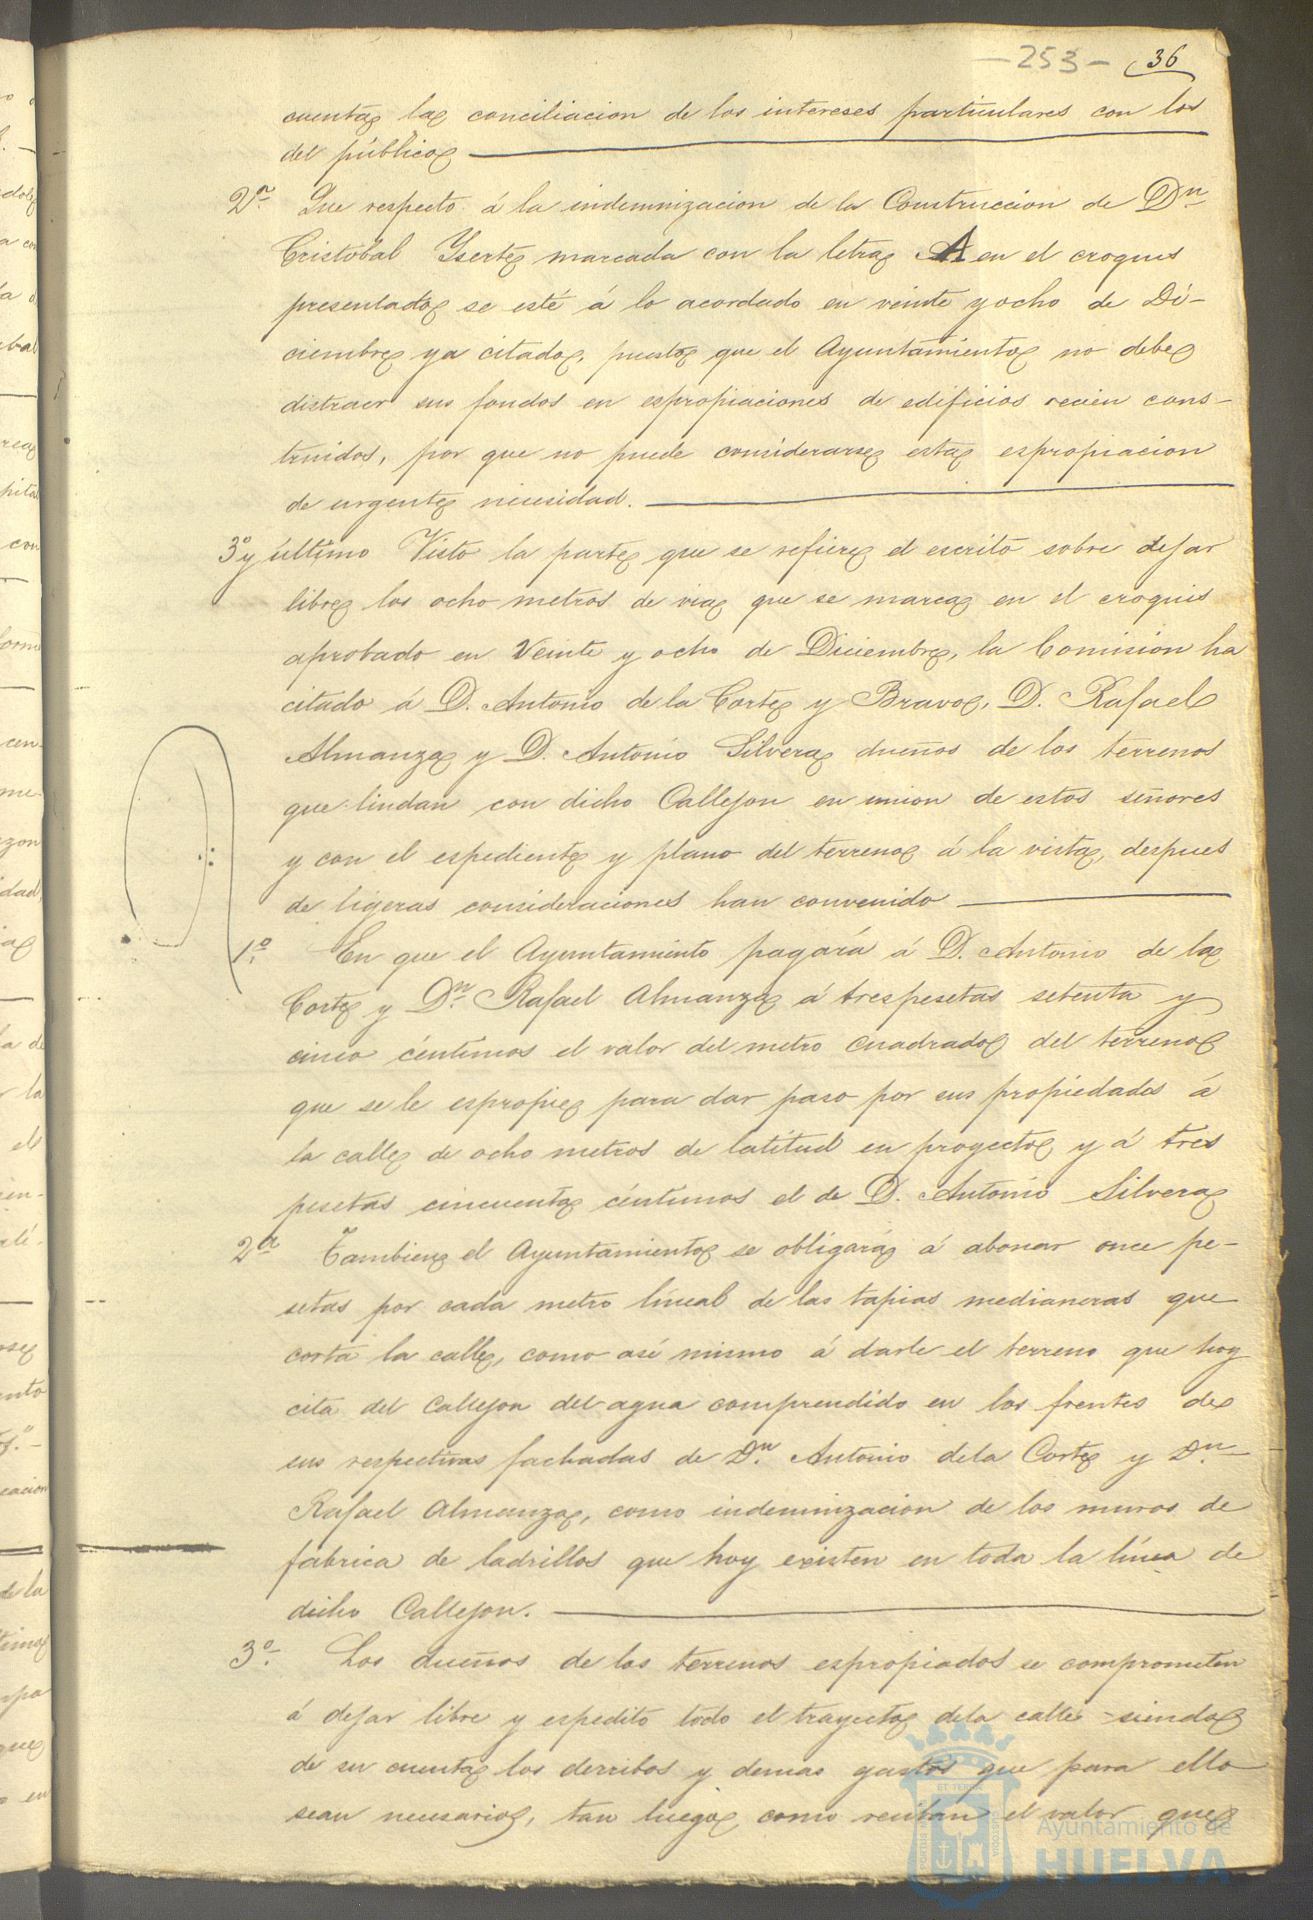 -253- 36
cuenta la conciliacion de los intereses particulares con los
del público
2ª. Que respecto á la indemnizacion de la Construccion de Dn.
Cristobal Yserte marcada con la letra A en el croquis
presentado se esté á lo acordado en veinte y ocho de Di-
ciembre ya citado, puesto que el Ayuntamiento no debe
distraer sus fondos en espropiaciones de edificios recien cons-
truidos, por que no puede considerarse esta espropiacion
de urgente necesidad.
3º y último Visto la parte que se refiere el escrito sobre dejar
libre los ocho metros de via que se marca en el croquis
aprobado en Veinte y ocho de Diciembre, la Comision ha
citado á D. Antonio de la Corte y Bravo, D. Rafael
Almanza y D. Antonio Silvera dueños de los terrenos
que lindan con dicho Callejon en union de estos señores
y con el espediente y plano del terreno á la vista, despues
de ligeras consideraciones han convenido
1.º En que el Ayuntamiento pagará á D. Antonio de la
Corte y Dn. Rafael Almanza á tres pesetas setenta y
cinco céntimos el valor del metro cuadrado del terreno
que se le espropie para dar paso por sus propiedades á
la calle de ocho metros de latitud en proyecto y á tres
pesetas cincuenta céntimos el de D. Antonio Silvera
2ª Tambien el Ayuntamiento se obligará á abonar once pe-
setas por cada metro lineal de las tapias medianeras que
corta la calle, como asi mismo á darle el terreno que hoy
cita del Callejon del agua comprendido en los frentes de
sus respectivas fachadas de Dn. Antonio de la Corte y Dn.
Rafael Almanza, como indemnizacion de los muros de
fabrica de ladrillos que hoy existen en toda la línea de
dicho Callejon.
3º. Los dueños de los terrenos espropiados se comprometen
á dejar libre y espedito todo el trayecto de la calle siendo
de su cuenta los derribos y demas gastos que para ello
sean necesarios, tan luego como reciban el valor que
Ayuntamiento de
HUELVA